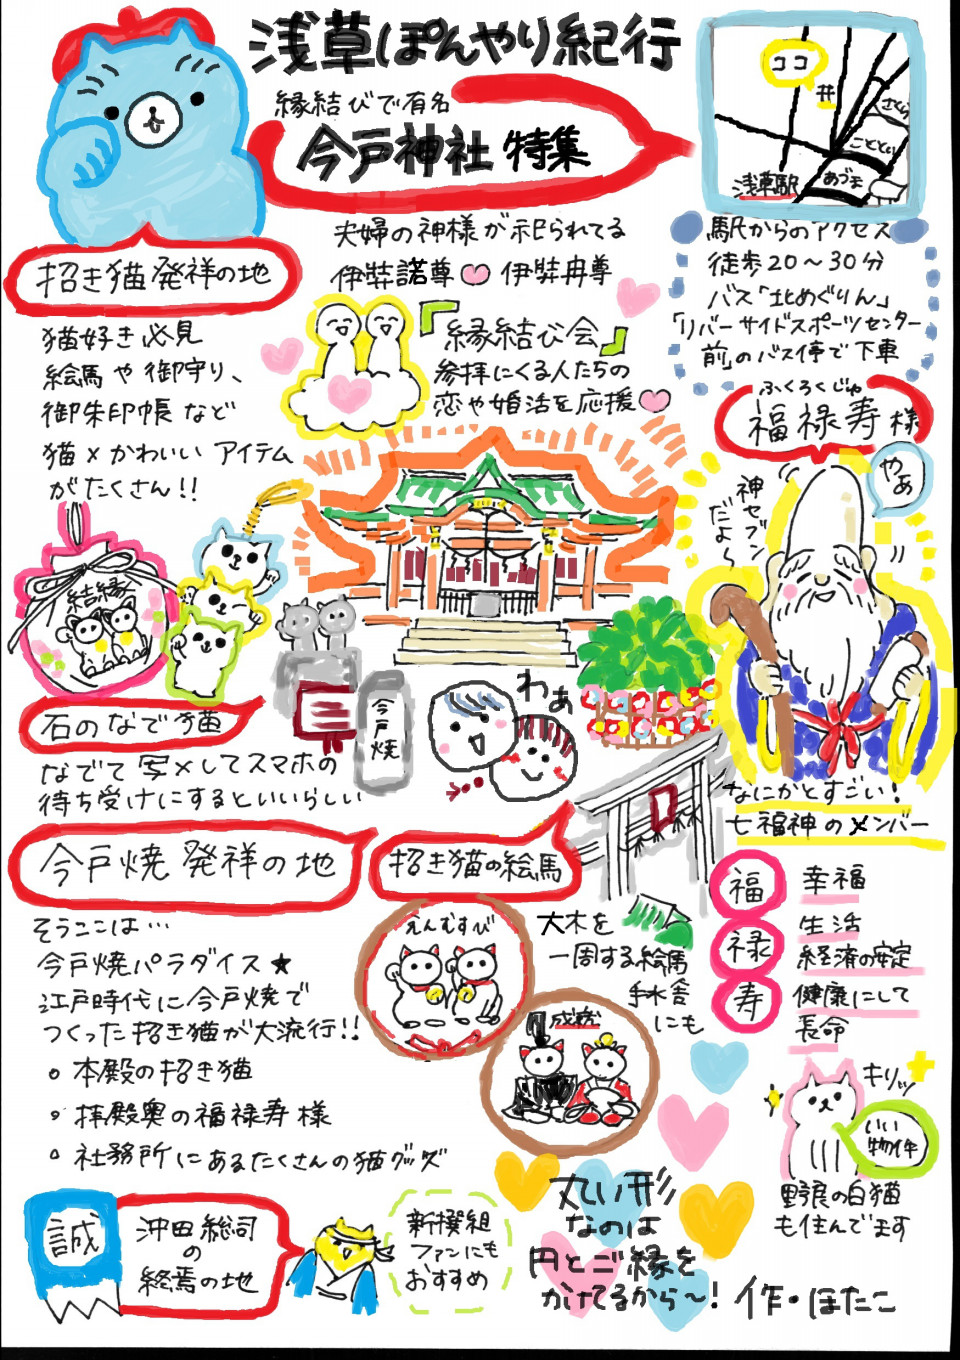 浅草ぽんやり紀行
縁結びで有名
今戸神社 特集
ココ
卍
さくら
こととい
あづま
浅草駅
駅からのアクセス
徒歩20～30分
バス「北めぐりん」
「リバーサイドスポーツセンター
前」のバス停で下車
夫婦の神様が祀られてる
伊弉諾尊 伊弉冉尊
「縁結び会」
参拝にくる人たちの
恋や婚活を応援
招き猫発祥の地
猫好き必見
絵馬や御守り、
御朱印帳など
猫×かわいいアイテム
がたくさん!!
結縁
ふくろくじゅ
福禄寿様
やぁ
神セブン
だよ～
なにかとすごい!
七福神のメンバー
福 幸福
禄 生活
経済の安定
寿 健康にして
長命
石のなで猫
なでて写メしてスマホの
待ち受けにするといいらしい
今戸焼
わぁ
今戸焼 発祥の地
そうここは…
今戸焼パラダイス★
江戸時代に今戸焼で
つくった招き猫が大流行!!
。本殿の招き猫
。拝殿奥の福禄寿様
。社務所にあるたくさんの猫グッズ
招き猫の絵馬
えんむすび
大木を
一周する絵馬
手水舎
にも
成就
キリッ
いい
物件
野良の白猫
も住んでます
誠
沖田総司
の
終焉の地
新撰組
ファンにも
おすすめ
丸い形
なのは
円とご縁を
かけてるから～!
作・ほたこ